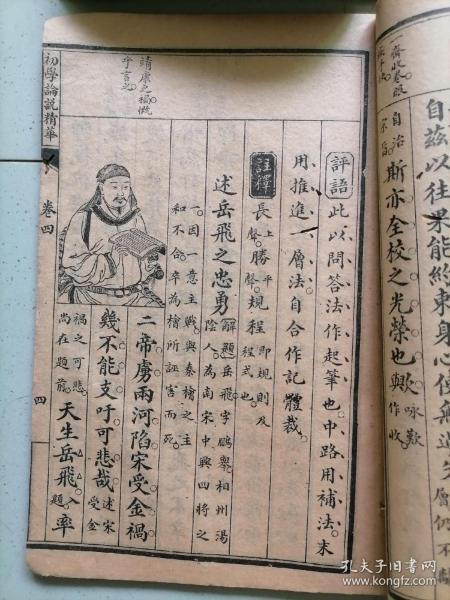 一齋收卷嚴
自治
自茲以往果能約束身心使無過失
不
斯亦全校之光榮也歟
詠歎
作收
層仍不
靖康之禍慨
乎言之
評語
此以問答法作起筆也中路用補法末
用推進一層法自合作記體裁
註釋
長上聲
勝平聲
規程即規則及程式也
述岳飛之忠勇
解題
岳飛字鵬舉相州湯
陰人為南宋中興四將之
一因意主戰與秦檜之主
和不合卒為檜所誣害而死
二帝虜兩河陷宋受金禍
幾不能支吁可悲哉
述宋
受金
禍之可悲
尚在題前
天生岳飛
入
題
率
初學論說精華
卷四
四
孔夫子旧书网
book.kongfz.com